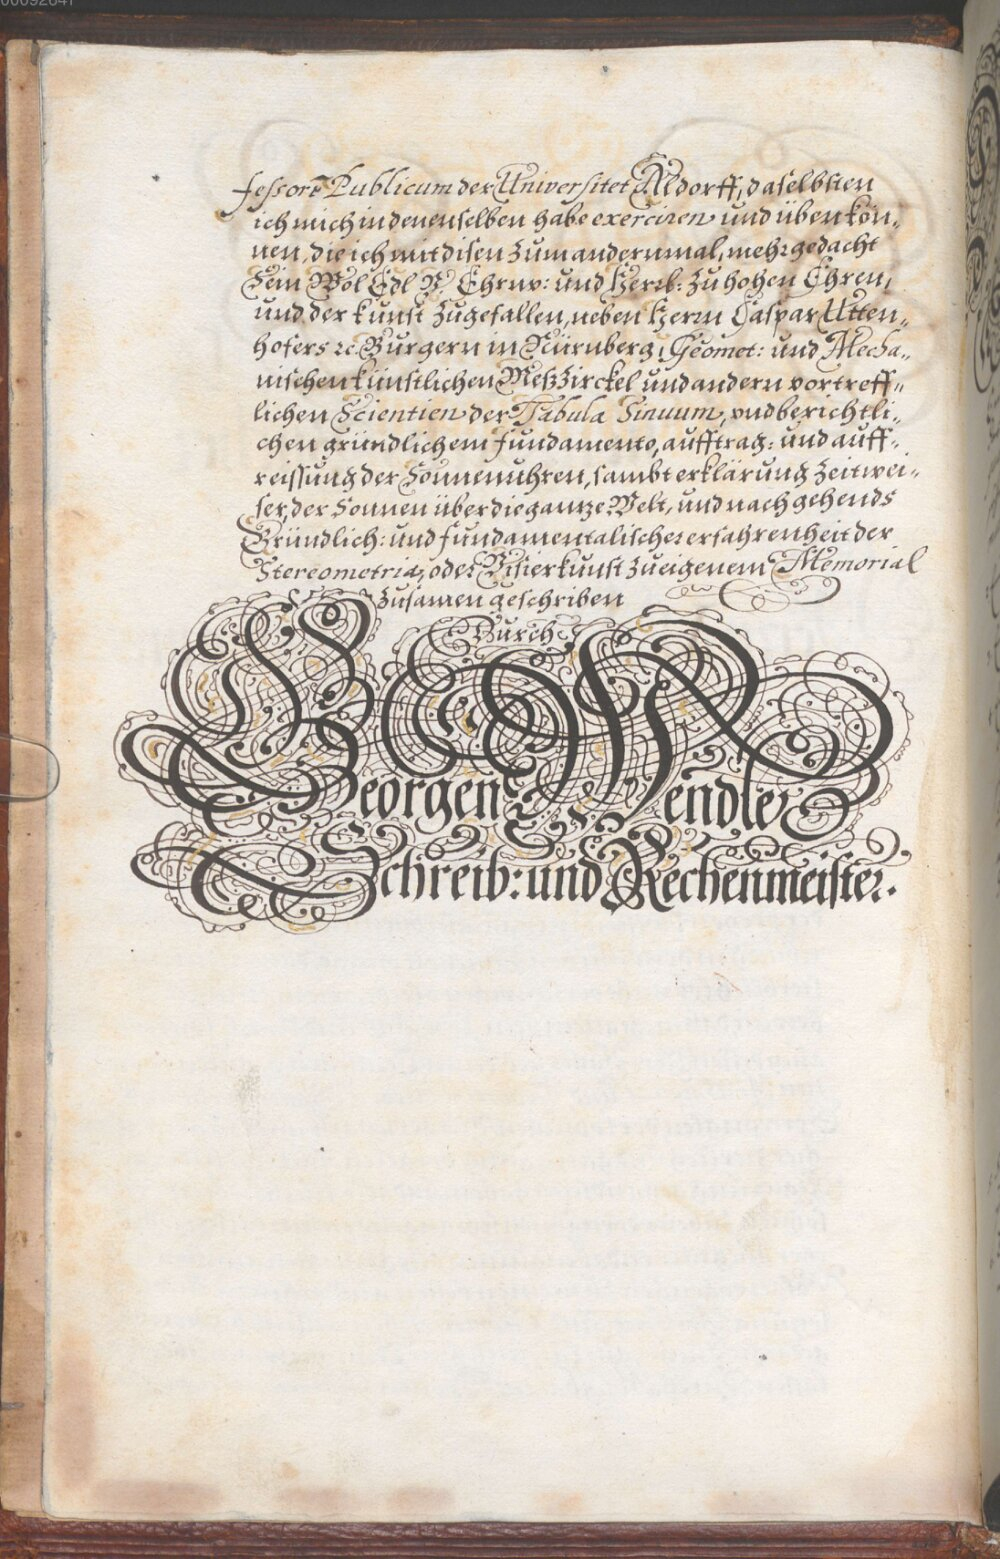 00092847
fessorē Publicum der Universitet Altdorff, daselbsten
ich mich in denenselben habe exerciren und üben kön„
nen, die ich mit disen zum andernmal, mehrgedacht
Sein Wol Edl V. Ehrnv: und Herrl: zu hohen Ehren,
und der kunst zugefallen, neben Herrn Caspar Utten„
hofers ec. Burgern in Nürnberg, Geomet: und Mecha„
nischen künstlichen Meßzirckel und andern vortreff„
lichen Scientien der Tabula Sinuum, und berichtli„
chen gründlichem fundamento, aufftrag: und auff„
reissung der Sonnenuhren, sambt erklärung Zeitwei„
ser, der Sonnen über die gantze Welt, und nachgehends
Gründlich: und fundamentalischer erfahrenheit der
Stereometria, oder Visierkunst zu eigenem Memorial
zusamen geschriben
Durch
Georgen Wendler
Schreib: und Rechenmeister.